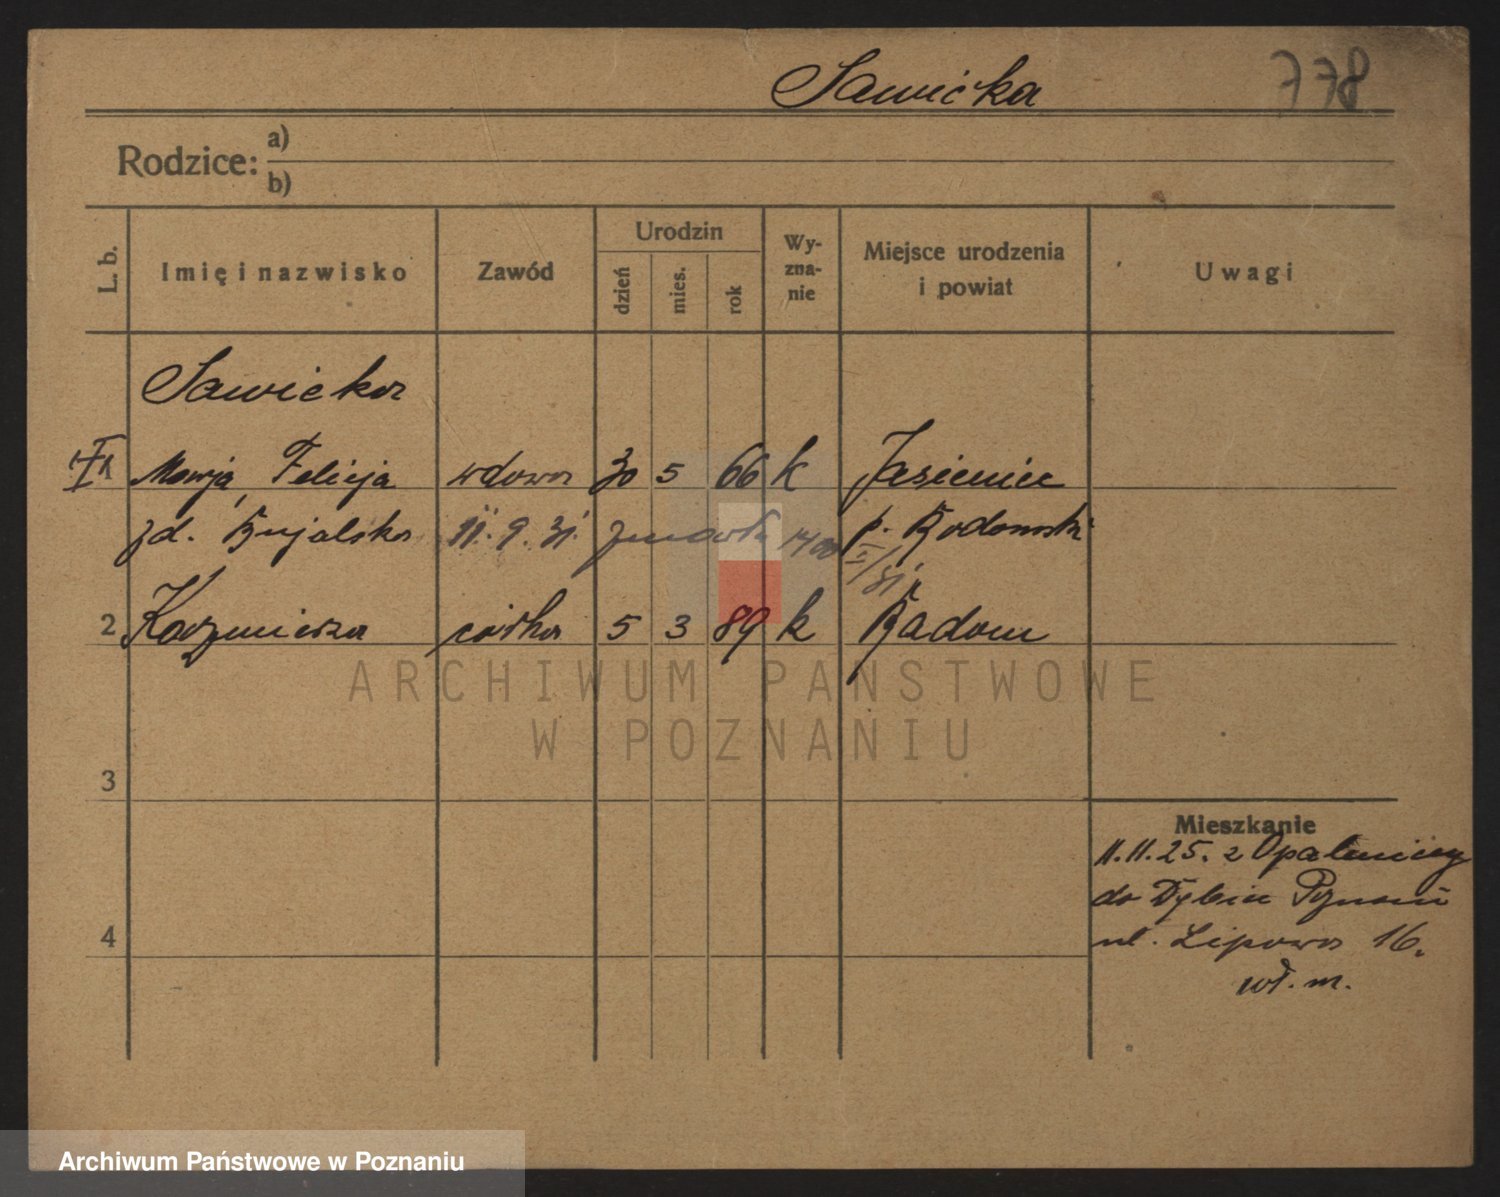 Sawicka 778
Rodzice: a)
b)
L. b. Imię i nazwisko Zawód Urodzin dzień mies. rok Wy-zna-nie Miejsce urodzenia i powiat Uwagi
Sawicka
1 Marja Felicja wdowa 30 5 66 k Jasieniec
zd. Kujalska 11. 9. 31. zmarła p. Radomski
2 Kazimiera córka 5 3 89 k Radom
ARCHIWUM PAŃSTWOWE
W POZNANIU
3
Mieszkanie
11.11.25. z Opalenicy
do Dębiec Poznań
4
ul. Lipowa 16.
wł. m.
Archiwum Państwowe w Poznaniu